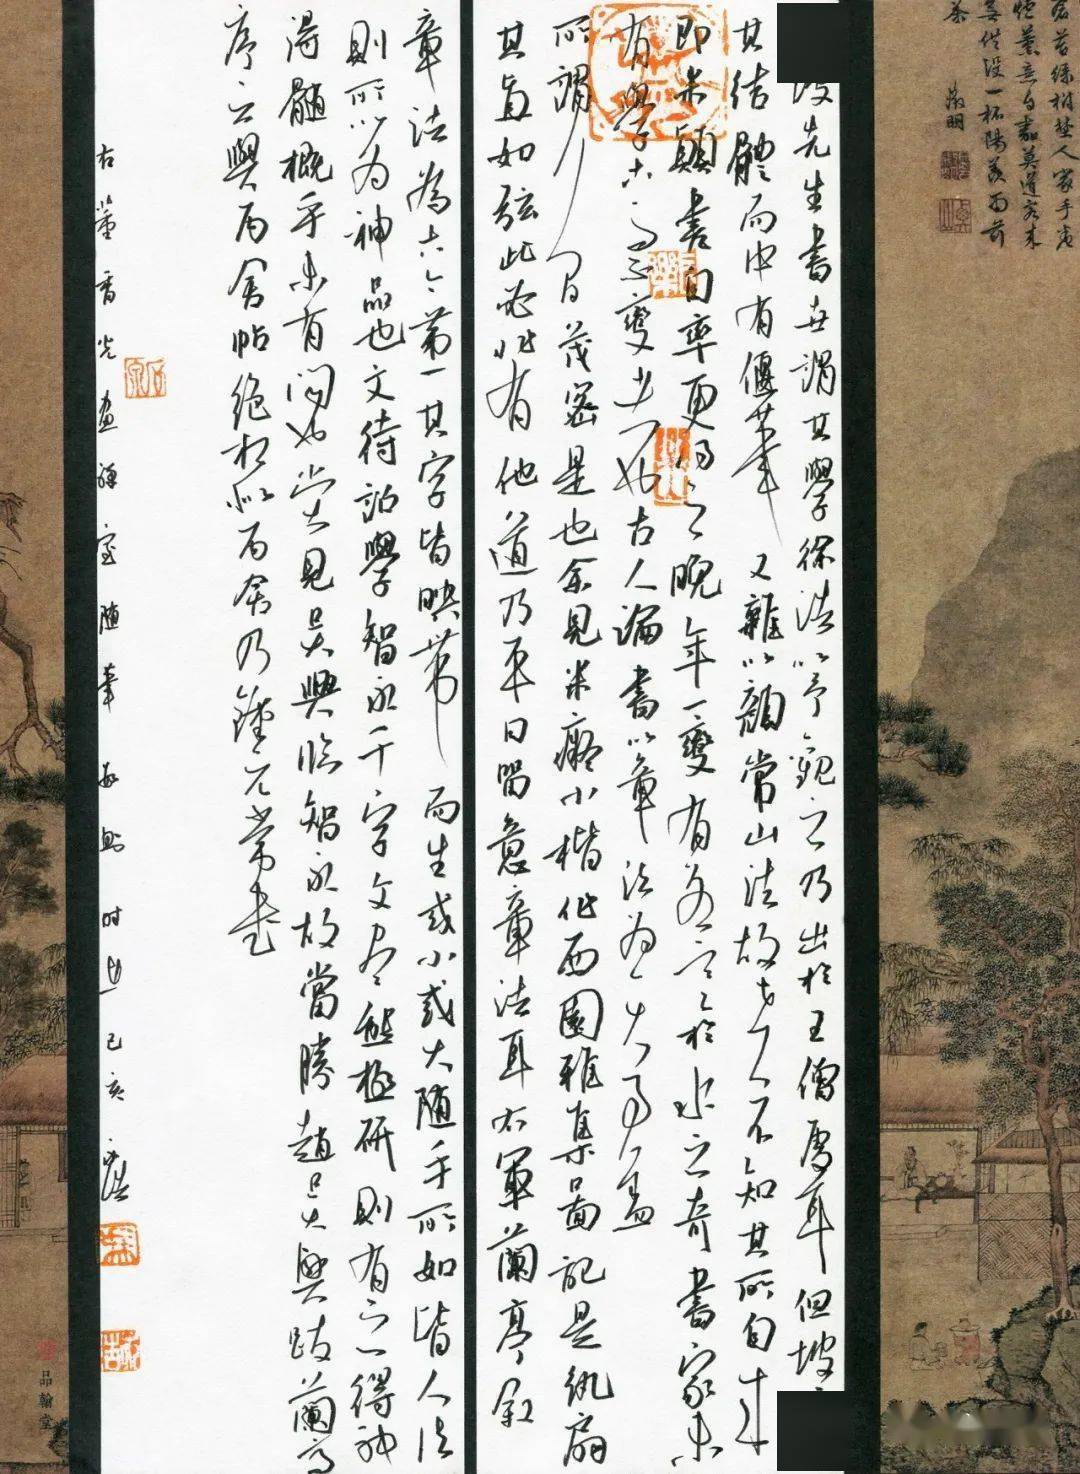 莫道客來
無供設一杯陽羨雨前
茶
徵明
坡先生書世謂其學徐浩以予觀之乃出於王僧虔耳但坡
其結體而中有偃筆又雜以顏常山法故世人不知其所自來
即米顛書自率更得之晚年一變有冰寒於水之奇書家未
有學古而不變者也古人論書以章法為一大事蓋
所謂行間茂密是也余見米癡小楷作西園雅集圖記是紈扇
其直如弦此必非有他道乃平日留意章法耳右軍蘭亭敘
章法為古今第一其字皆映帶而生或小或大隨手所如皆入法
則所以為神品也文待詔學智永千字文盡態極妍則有之得神
得髓概乎未有聞也嘗見吳興臨智永故當勝趙吳興跋蘭亭
序云與丙舍帖絕相似丙舍乃鍾元常書
右董香光畫禪室隨筆 己亥
品翰堂